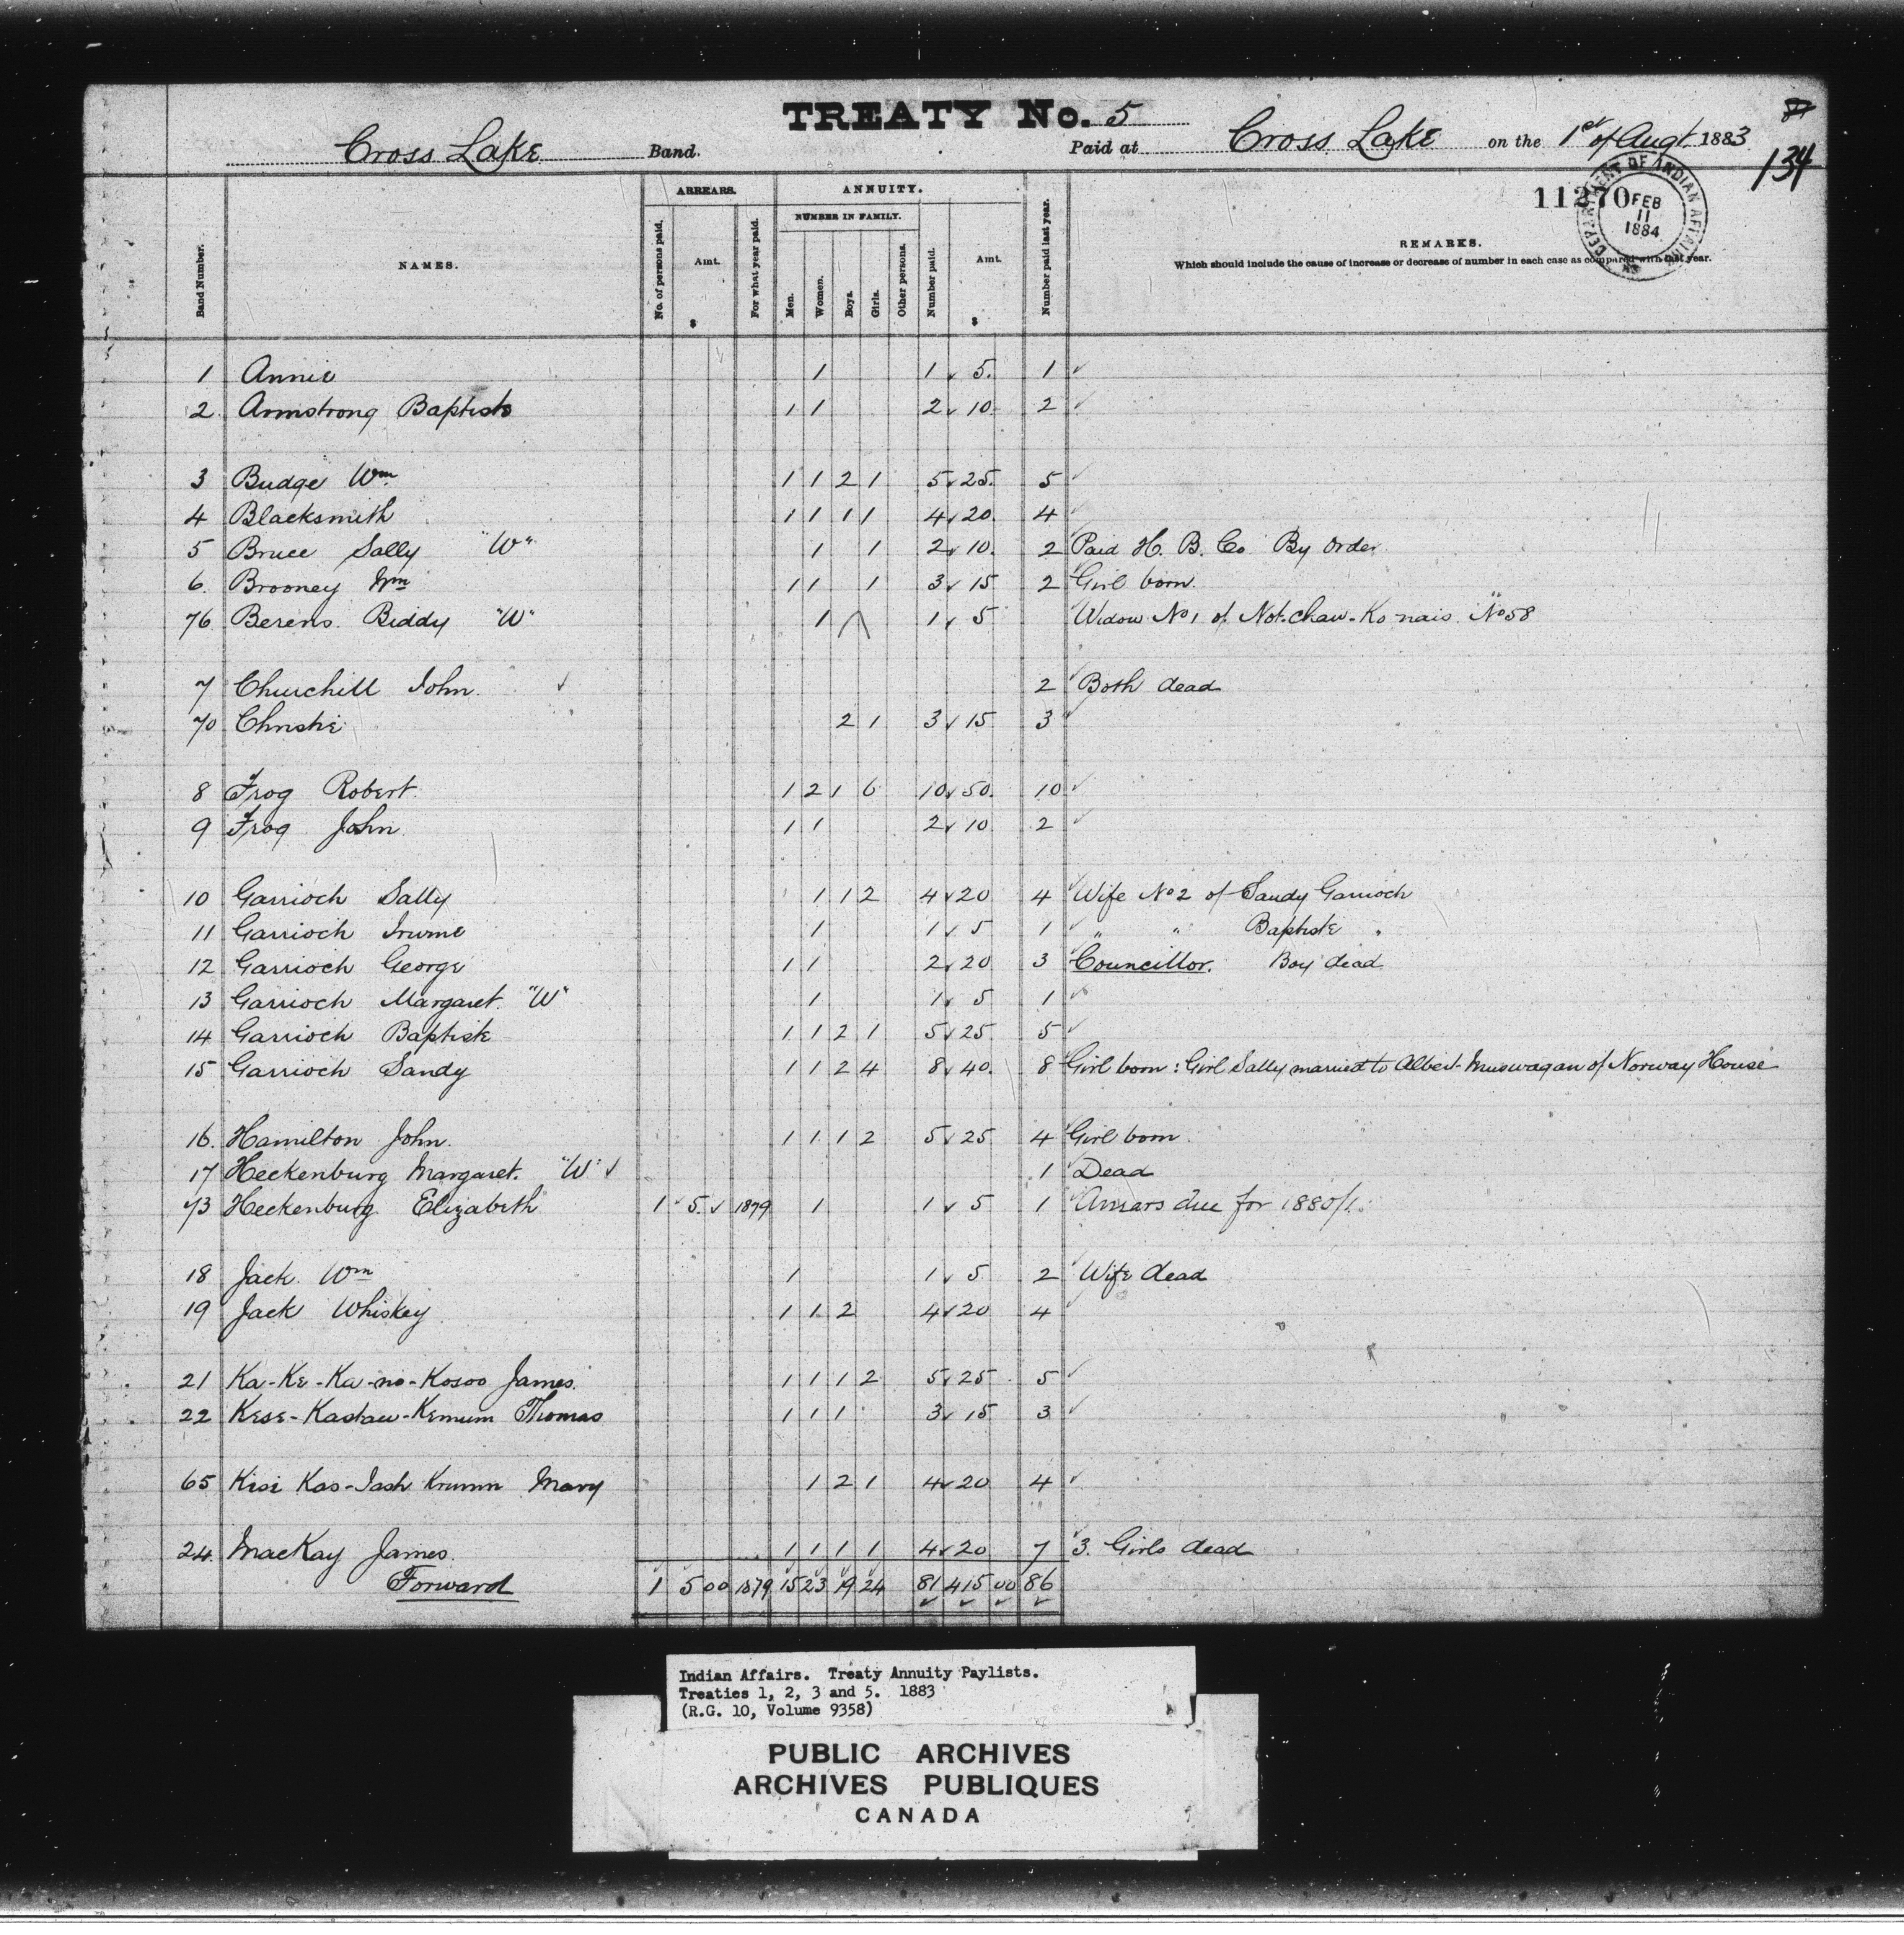 TREATY No. 5
87
Cross Lake Band. Paid at Cross Lake on the 1st of Augt. 1883
134
11270
DEPARTMENT OF INDIAN AFFAIRS
FEB
11
1884
ARREARS. ANNUITY.
NUMBER IN FAMILY.
Band Number. NAMES. No. of persons paid. Amt. $ For what year paid. Men. Women. Boys. Girls. Other persons. Number paid. Amt. $ Number paid last year. REMARKS.
Which should include the cause of increase or decrease of number in each case as compared with last year.
1 Annie 1 1 5. 1
2 Armstrong Baptiste 1 1 2 10. 2
3 Budge Wm 1 1 2 1 5 25. 5
4 Blacksmith 1 1 1 1 4 20. 4
5 Bruce Sally "W" 1 1 2 10. 2 Paid H. B. Co By Order
6. Brooney Wm 1 1 1 3 15 2 Girl born.
76 Berens Biddy "W" 1 1 5 Widow No 1 of Not-chaw-Ko-nais No 58
7 Churchill John. 2 Both dead
70 Christie 2 1 3 15 3
8 Frog Robert. 1 2 1 6 10 50. 10
9 Frog John. 1 1 2 10 2
10 Garrioch Sally 1 1 2 4 20 4 Wife No 2 of Sandy Garrioch
11 Garrioch 1 1 5 1 " " Baptiste "
12 Garrioch George 1 1 2 20 3 Councillor. Boy dead
13 Garrioch Margaret. "W" 1 1 5 1
14 Garrioch Baptiste 1 1 2 1 5 25 5
15 Garrioch Sandy 1 1 2 4 8 40. 8 Girl born: Girl Sally married to Albert Muswagan of Norway House
16. Hamilton John. 1 1 1 2 5 25 4 Girl born.
17 Heckenburg Margaret. "W" 1 Dead
73 Heckenburg Elizabeth 1 5. 1879 1 1 5 1 Arrears due for 1880/1.
18 Jack Wm 1 1 5 2 Wife dead
19 Jack Whiskey 1 1 2 4 20 4
21 Ka-Ke-Ka-no-Kosoo James. 1 1 1 2 5 25 5
22 Kese-Kastaw-Kemum Thomas 1 1 1 3 15 3
65 Kisi Kas- Mary 1 2 1 4 20 4
24. MacKay James. 1 1 1 1 4 20 7 3. Girls dead
Forward 1 5 00 1879 15 23 19 24 81 415 00 86
Indian Affairs. Treaty Annuity Paylists.
Treaties 1, 2, 3 and 5. 1883
(R.G. 10, Volume 9358)
PUBLIC ARCHIVES
ARCHIVES PUBLIQUES
CANADA